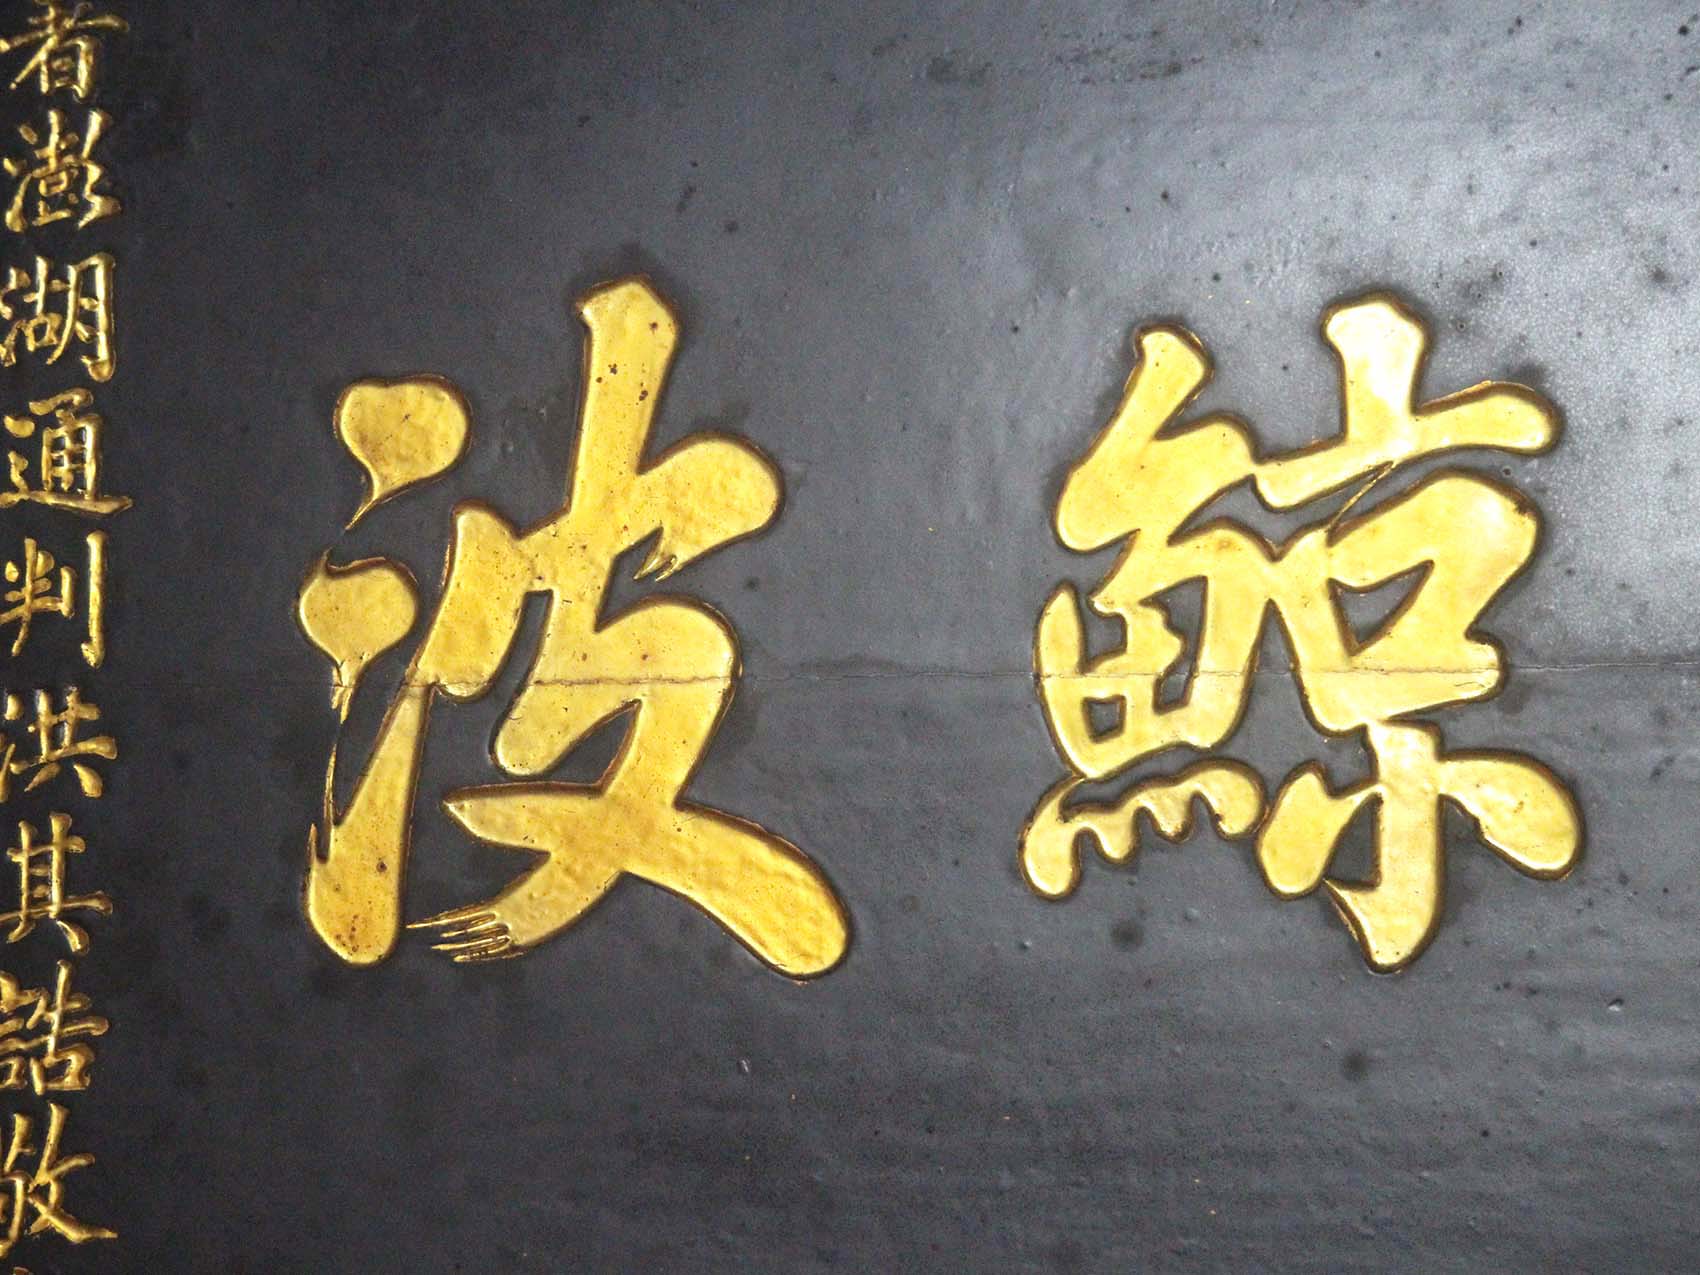 鯨波
者澎湖通判洪其誥敬